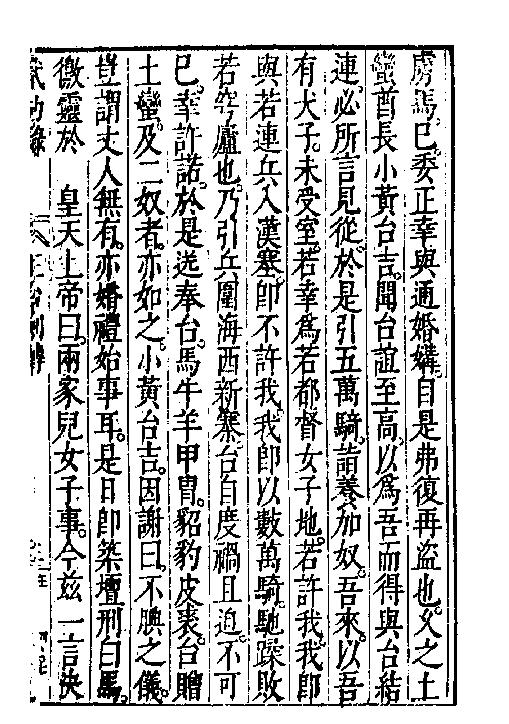 虜馬巳委正幸與通婚媾自是弗復再盜也父之土
蠻酋長小黃台吉聞台誼至高以為吾而得與台結
連必所言見從於是引五萬騎請養加奴吾來以吾
有犬子未受室若幸為若都督女子地若許我我卽
與若連兵入漢塞卽不許我我卽以數萬騎馳躁敗
若穹廬也乃引兵圍海西新寨台自度禍且迫不可
巳幸許諾於是送奉台馬牛羊甲冑貂豹皮裘台贈
土蠻及二奴者亦如之小黃台吉因謝曰不腆之儀
豈謂丈人無有亦婚禮始事耳是日卽築壇刑白馬
徼靈於 皇天上帝曰兩家兒女子事今茲一言決
武功錄